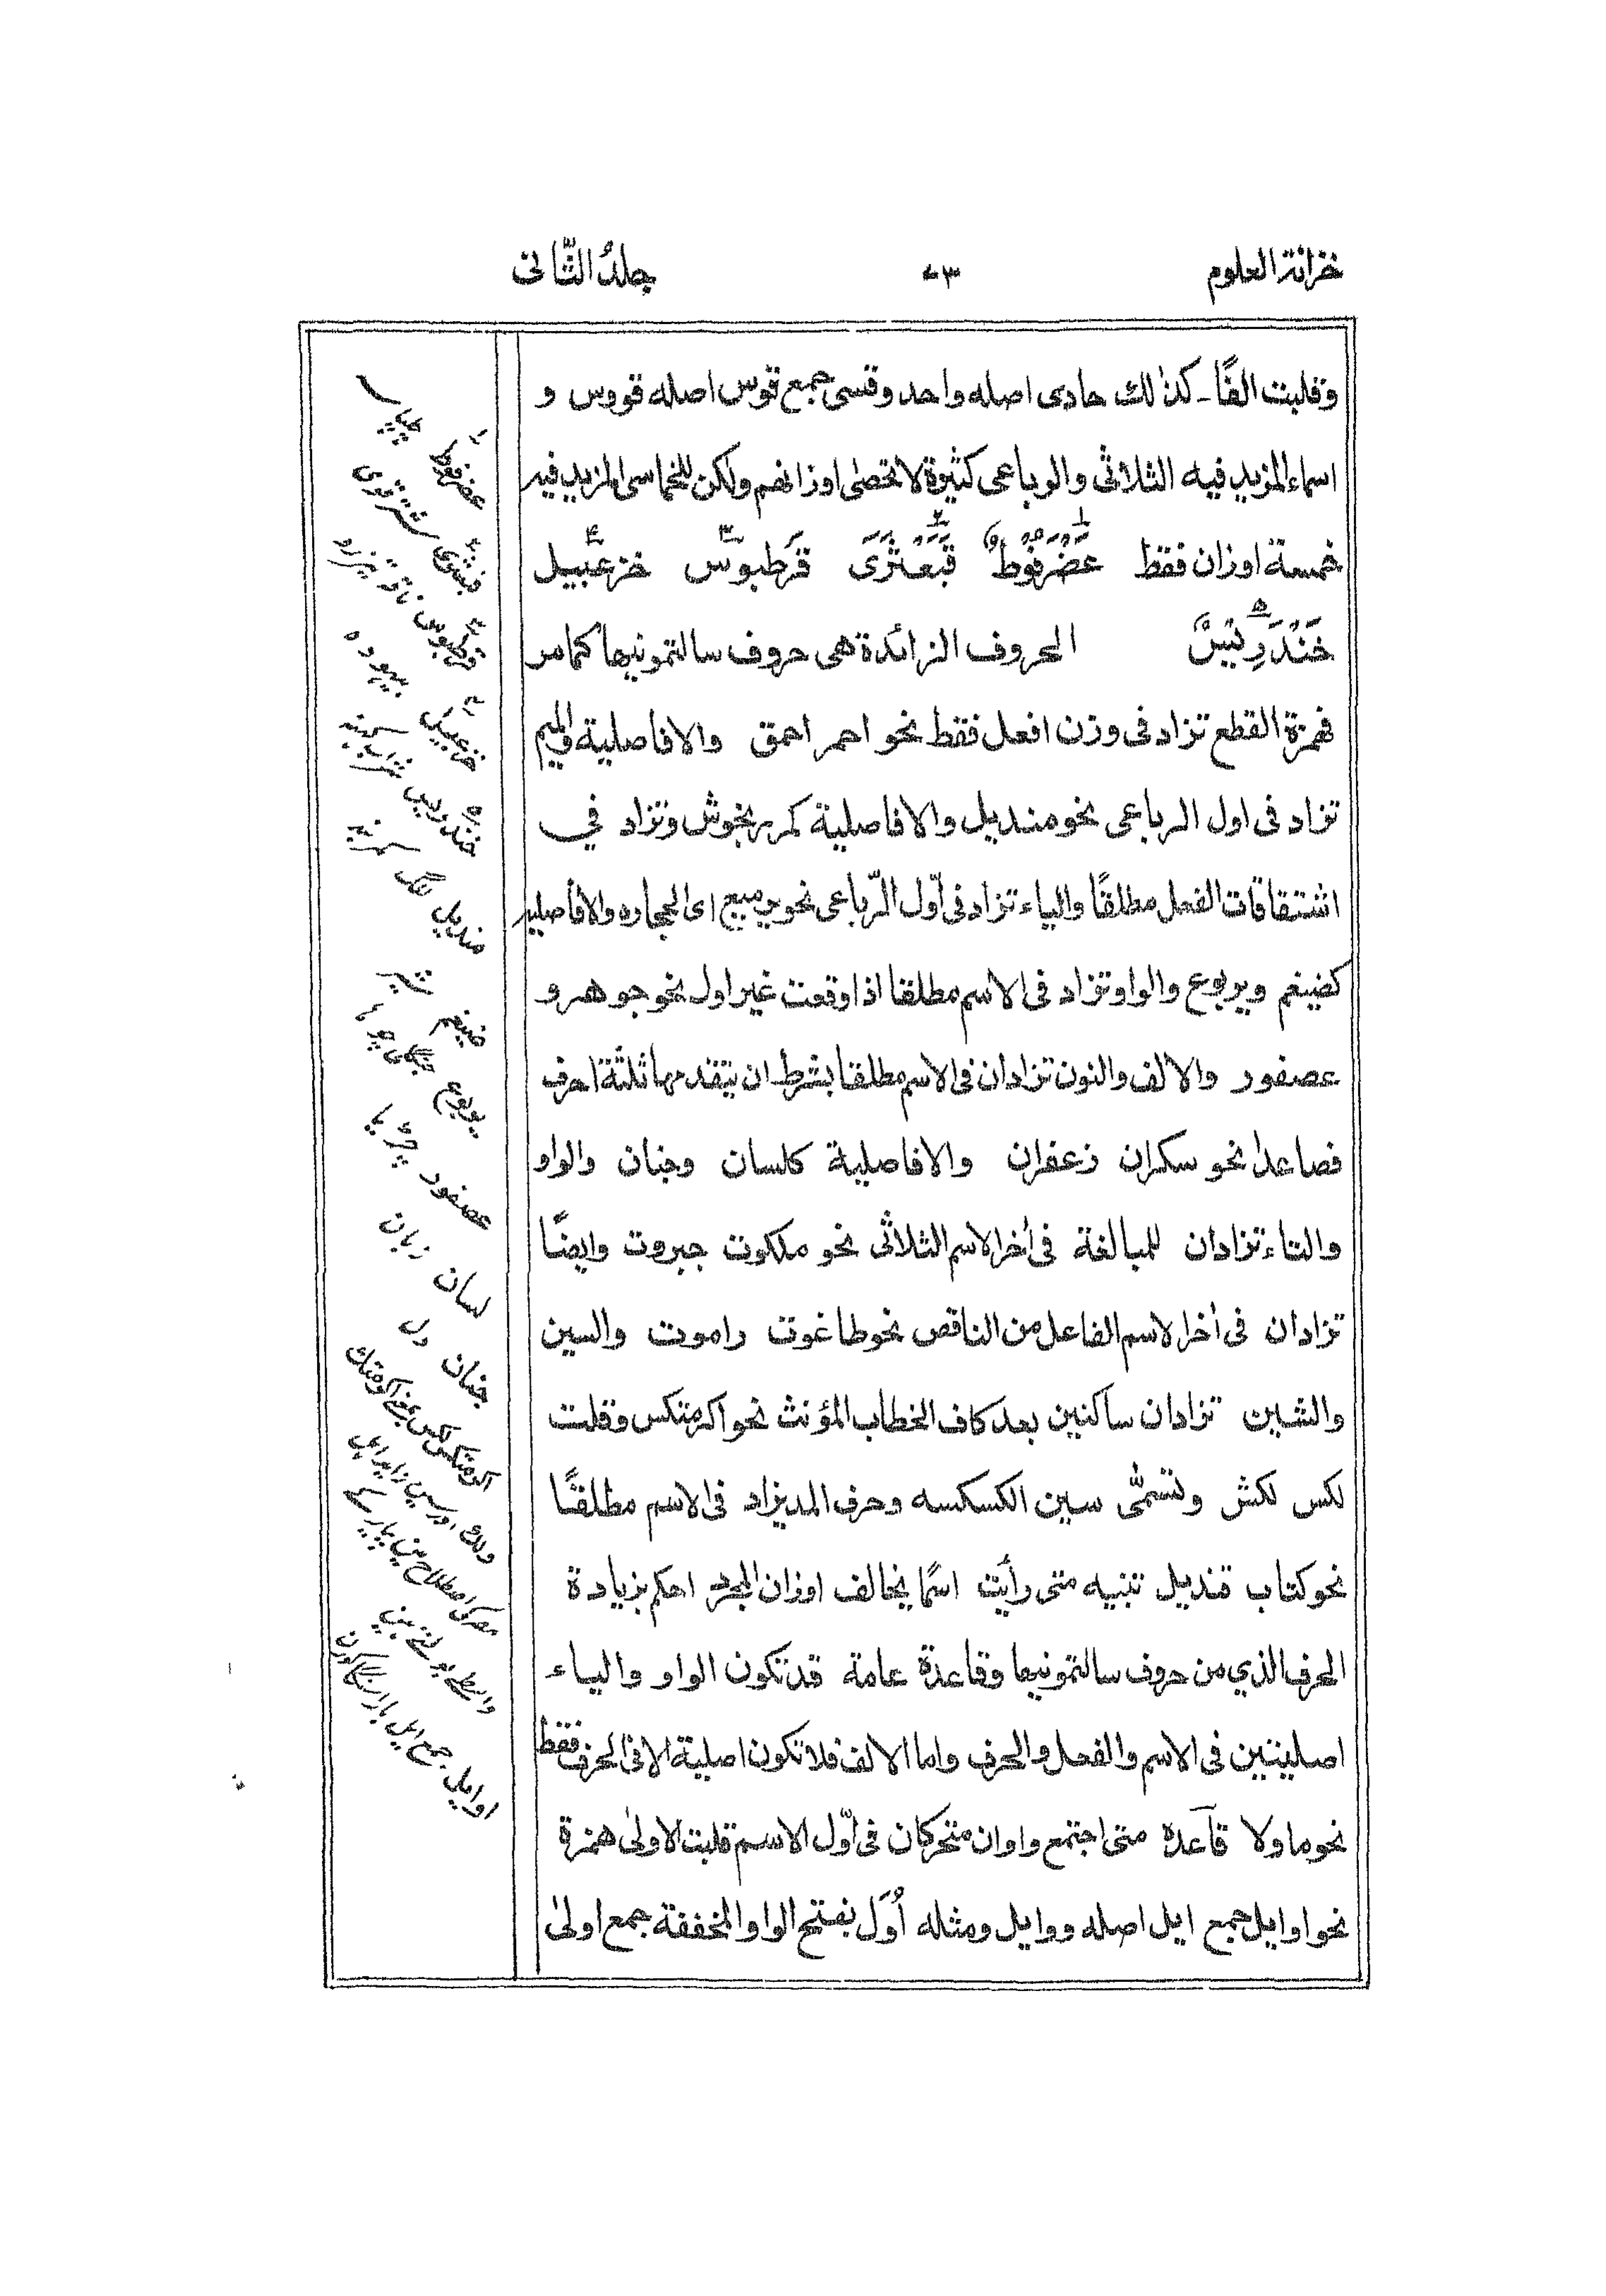 خزانة العلوم
٧٣
جلدُ الثّانى
وقلبت الفًا۔ كذلك حادى اصله واحد وقسى جمع قوس اصله قووس و
اسماء المزيد فيه الثلاثى والرباعى كثيرة لا تحصٰى اوزانهم ولكن للخماسى المزيد فيه
خمسة اوزان فقط عَضْرَفُوْطٌ قَبَعْثَرَىٰ قَرَطبوسٌ خزعبيل
خَنْدَرِيْسٌ الحروف الزائدة هى حروف سالتمونيها كمامر
فهمزة القطع تزاد فى وزن افعل فقط نحو احمر احمق والا فاصلية والميم
تزاد فى اول الرباعى نحو منديل والا فاصلية كمرزنجوش وتزاد في
اشتقاقات الفعل مطلقًا والياء تزاد فى اوّل الرّباعى نحو يرميع اى الحجاره والا فاصليه
كضيغم ويربوع والواو تزاد فى الاسم مطلقا اذا وقعت غير اول نحو جوهر و
عصفور والالف والنون تزادان فى الاسم مطلقا بشرط ان يتقدمها ثلثة احرف
فصاعدا نحو سكران زعفران والا فاصلية كلسان وجنان والواو
والتاء تزادان للمبالغة فى اٰخر الاسم الثلاثى نحو ملكوت جبروت وايضًا
تزادان فى اٰخر الاسم الفاعل من الناقص نحو طاغوت راموت والسين
والشين تزادان ساكنين بعد كاف الخطاب المؤنث نحو اكرمتكس وقلت
لكس لكش وتسمّٰى سين الكسكسه وحرف المد يزاد فى الاسم مطلقًا
نحو كتاب قنديل تنبيه متى رأيت اسمًا يخالف اوزان المجرد احكم بزيادة
الحرف الذي من حروف سالتمونيها وقاعدة عامة قد تكون الواو والياء
اصليتين فى الاسم والفعل والحرف واما الالف فلا تكون اصلية الا فى الحرف فقط
نحو ما ولا قاعده متى اجتمع واوان متحركان فى اوّل الاسم قلبت الاولىٰ همزة
نحو اوايل جمع ايل اصله ووايل ومثله اُوَل بفتح الواو المخففة جمع اولىٰ
عضرفوط
قبعثرى
قرطبوس
بيهوده
خزعبيل
خندريس
منديل
ضيغم شير
يربوع جنگلى چوہا
عصفور چڑيا
لسان زبان
جنان دل